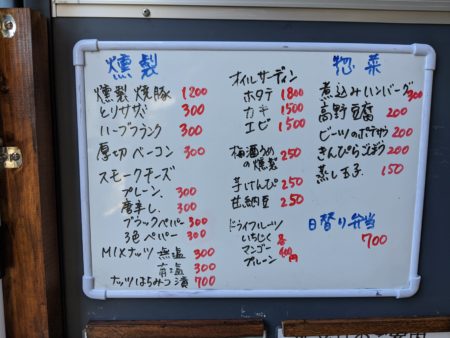 燻製
燻製焼豚 1200
とりササミ 300
ハーブフランク 300
厚切ベーコン 300
スモークチーズ
プレーン. 300
唐辛し. 300
ブラックペパー 300
3色ペパー 300
MIXナッツ 無塩 300
有塩 300
ナッツはちみつ漬 700
オイルサーディン
ホタテ 1800
カキ 1500
エビ 1500
梅酒うめの燻製 250
芋けんぴ 250
甘納豆 250
ドライフルーツ
いちじく 各
マンゴー 400円
プルーン
惣菜
煮込みハンバーグ 300
高野豆腐 200
ビーツのポテサラ 200
きんぴらごぼう 200
蒸し玉子 150
日替り弁当
700